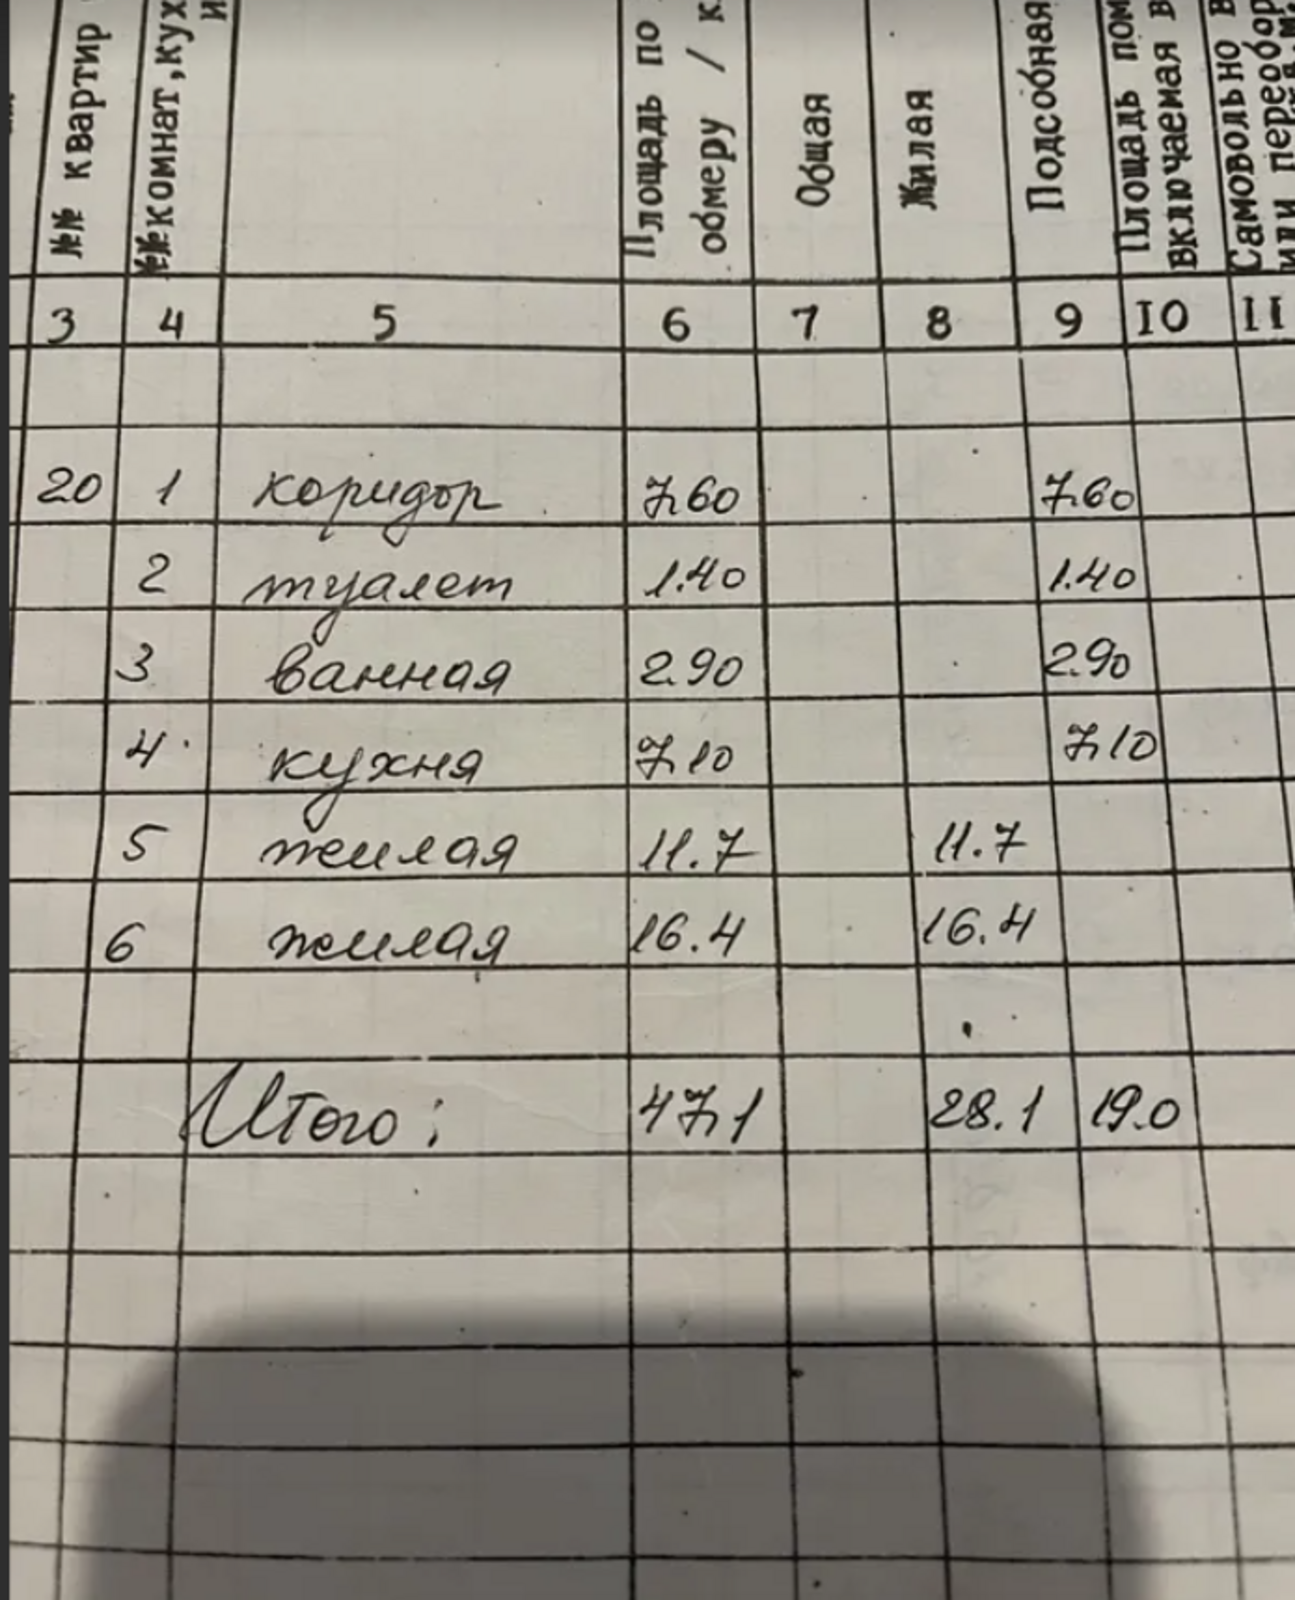 №№ квартир
№№ комнат, кух
и
Площадь по
обмеру / к.
Общая
Жилая
Подсобная
Площадь пом
включаемая в
Самовольно в
или переобор
3 4 5 6 7 8 9 10 11
20 1 коридор 7.60 7.60
2 туалет 1.40 1.40
3 ванная 2.90 2.90
4 кухня 7.10 7.10
5 жилая 11.7 11.7
6 жилая 16.4 16.4
Итого: 47.1 28.1 19.0